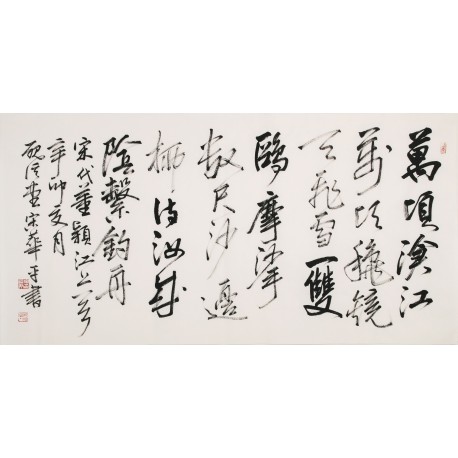 萬頃滄江
萬頃穐鏡
天飛雪一雙
鷗摩挲
數尺沙邊
柳待汝成
陰繫釣舟
宋代董穎江上
辛卯夏月
宋華平書